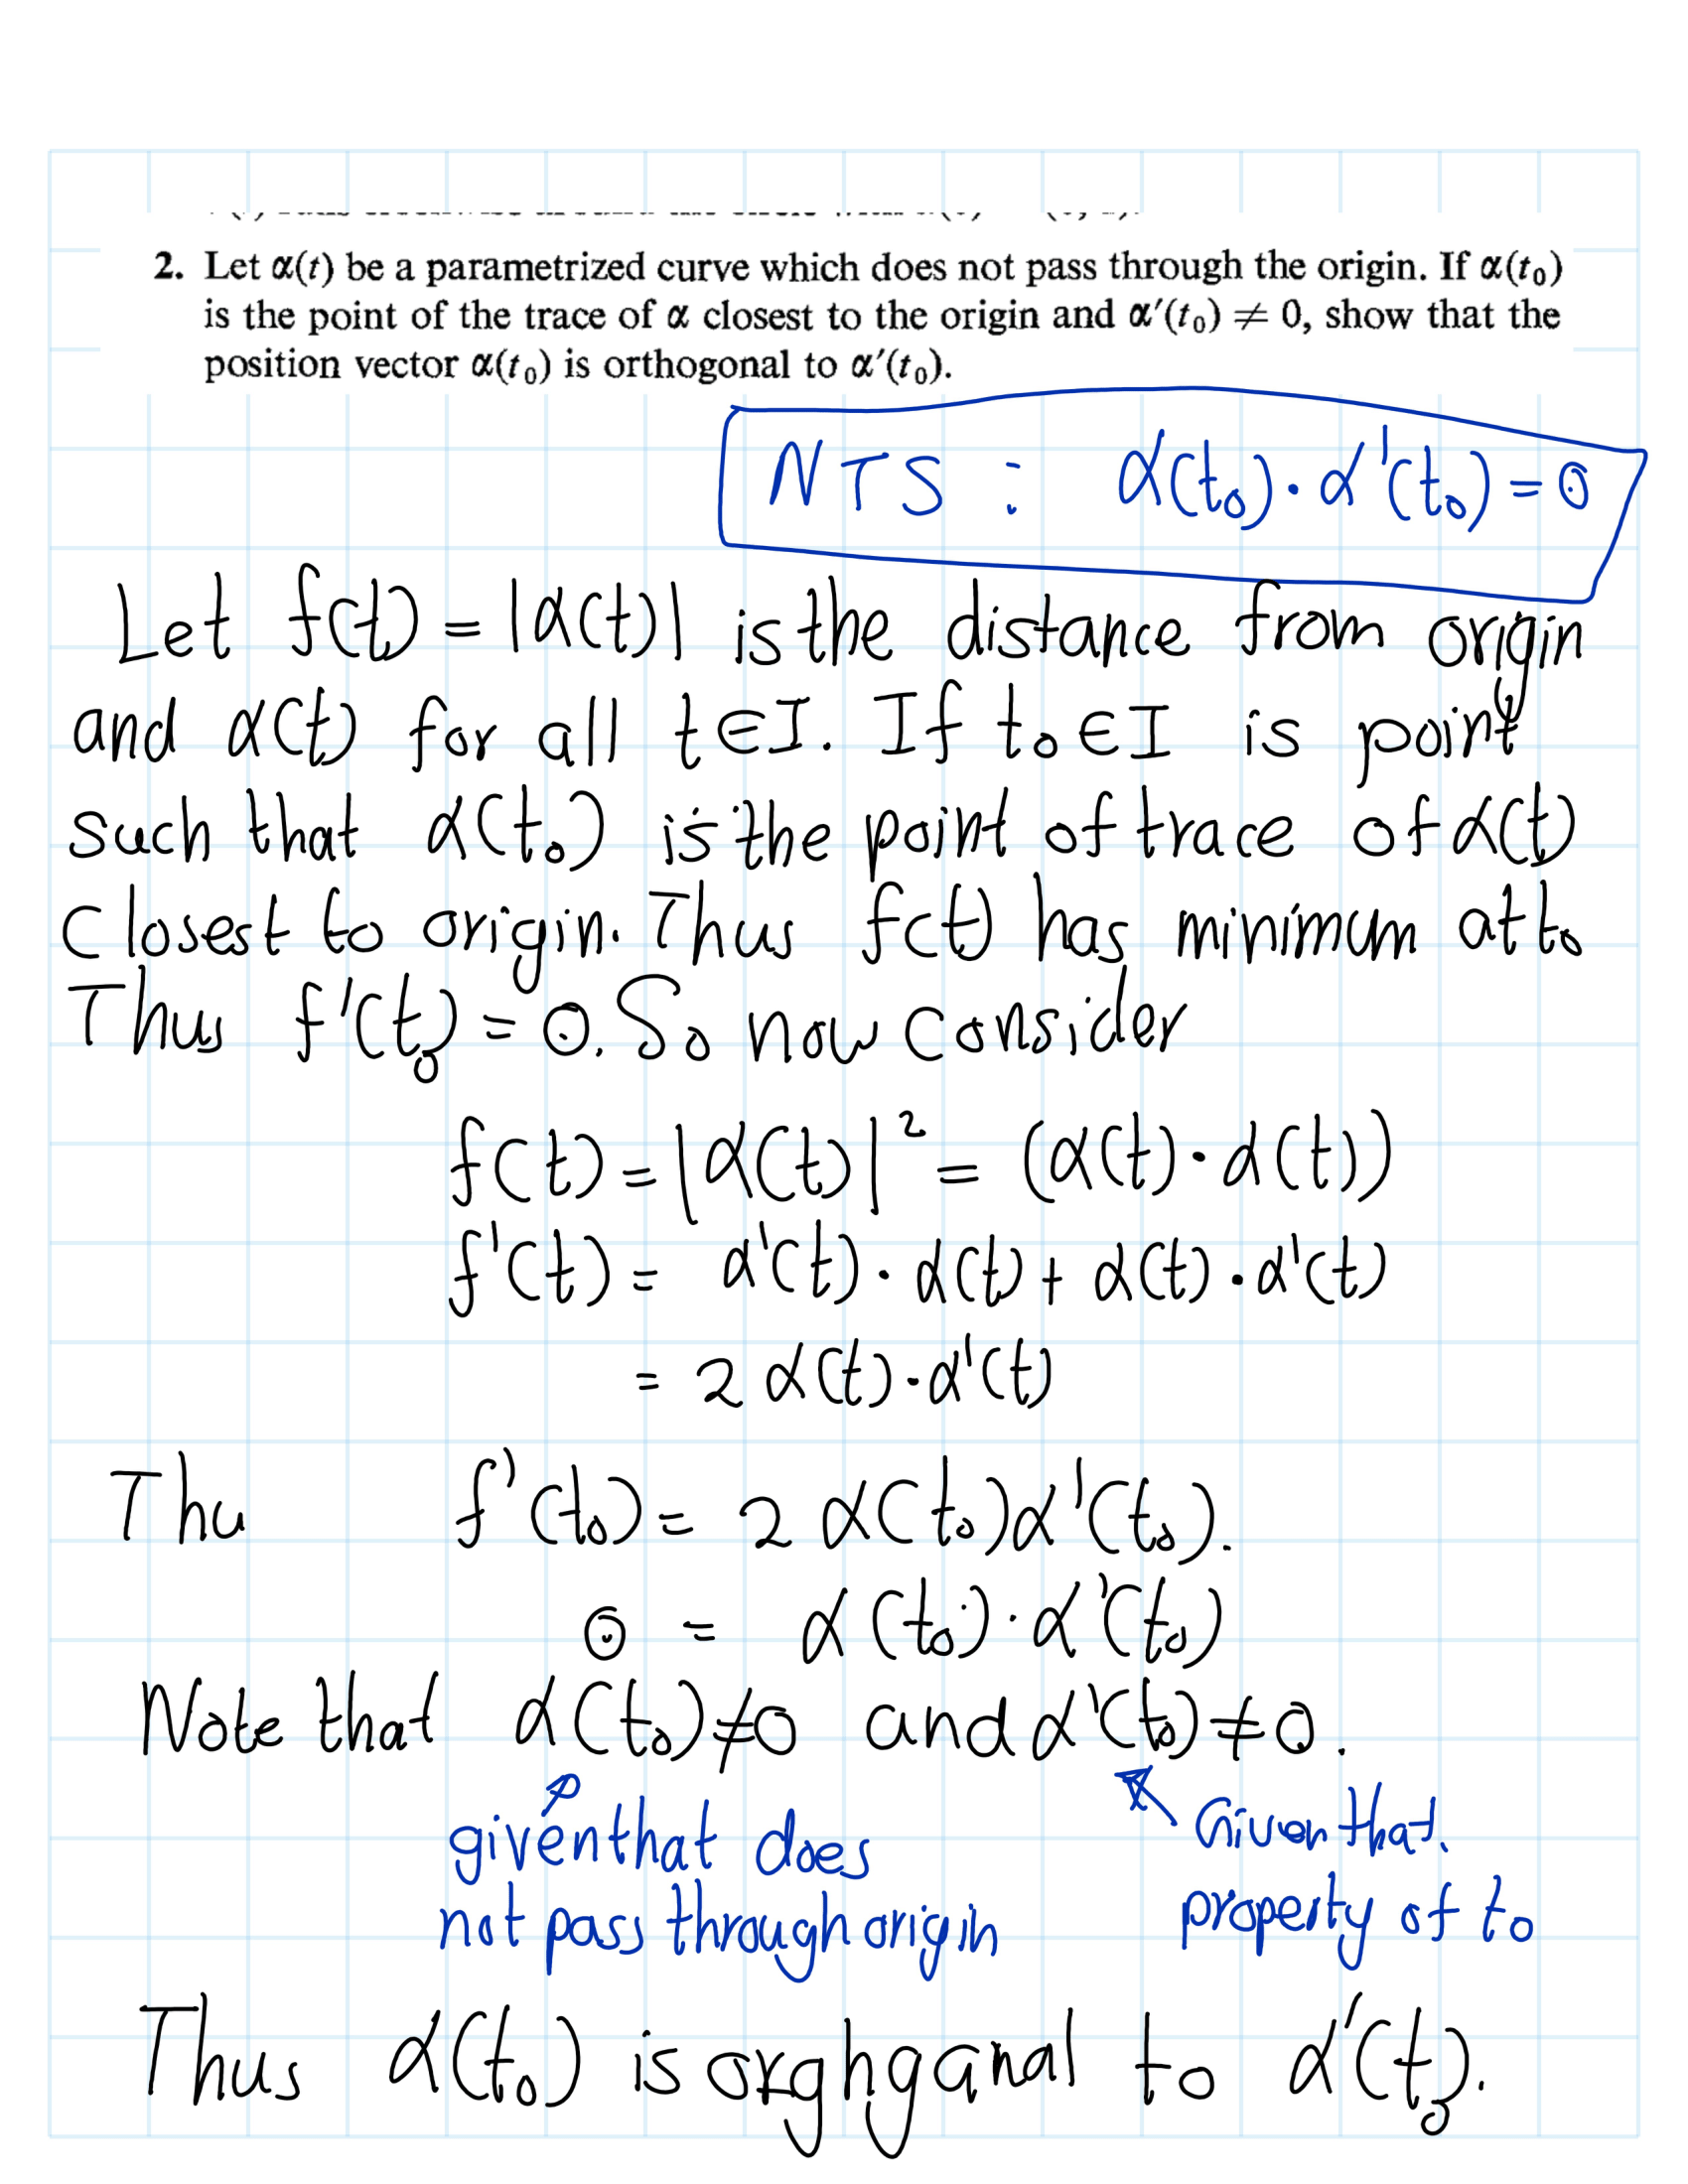 2. Let α(t) be a parametrized curve which does not pass through the origin. If α(t₀)
is the point of the trace of α closest to the origin and α′(t₀) ≠ 0, show that the
position vector α(t₀) is orthogonal to α′(t₀).
NTS : α(t₀)·α'(t₀)=0
Let f(t) = |α(t)| is the distance from origin
and α(t) for all t∈I. If t₀∈I is point
such that α(t₀) is the point of trace of α(t)
closest to origin. Thus f(t) has minimum at t₀
Thus f'(t₀) = 0. So now consider
f(t) = |α(t)|² = (α(t)·α(t))
f'(t) = α'(t)·α(t) + α(t)·α'(t)
= 2α(t)·α'(t)
Thu f'(t₀) = 2α(t₀)α'(t₀).
0 = α(t₀)·α'(t₀)
Note that α(t₀)≠0 and α'(t₀)≠0.
given that does
not pass through origin
Given that.
property of t₀
Thus α(t₀) is orghganal to α'(t₀).